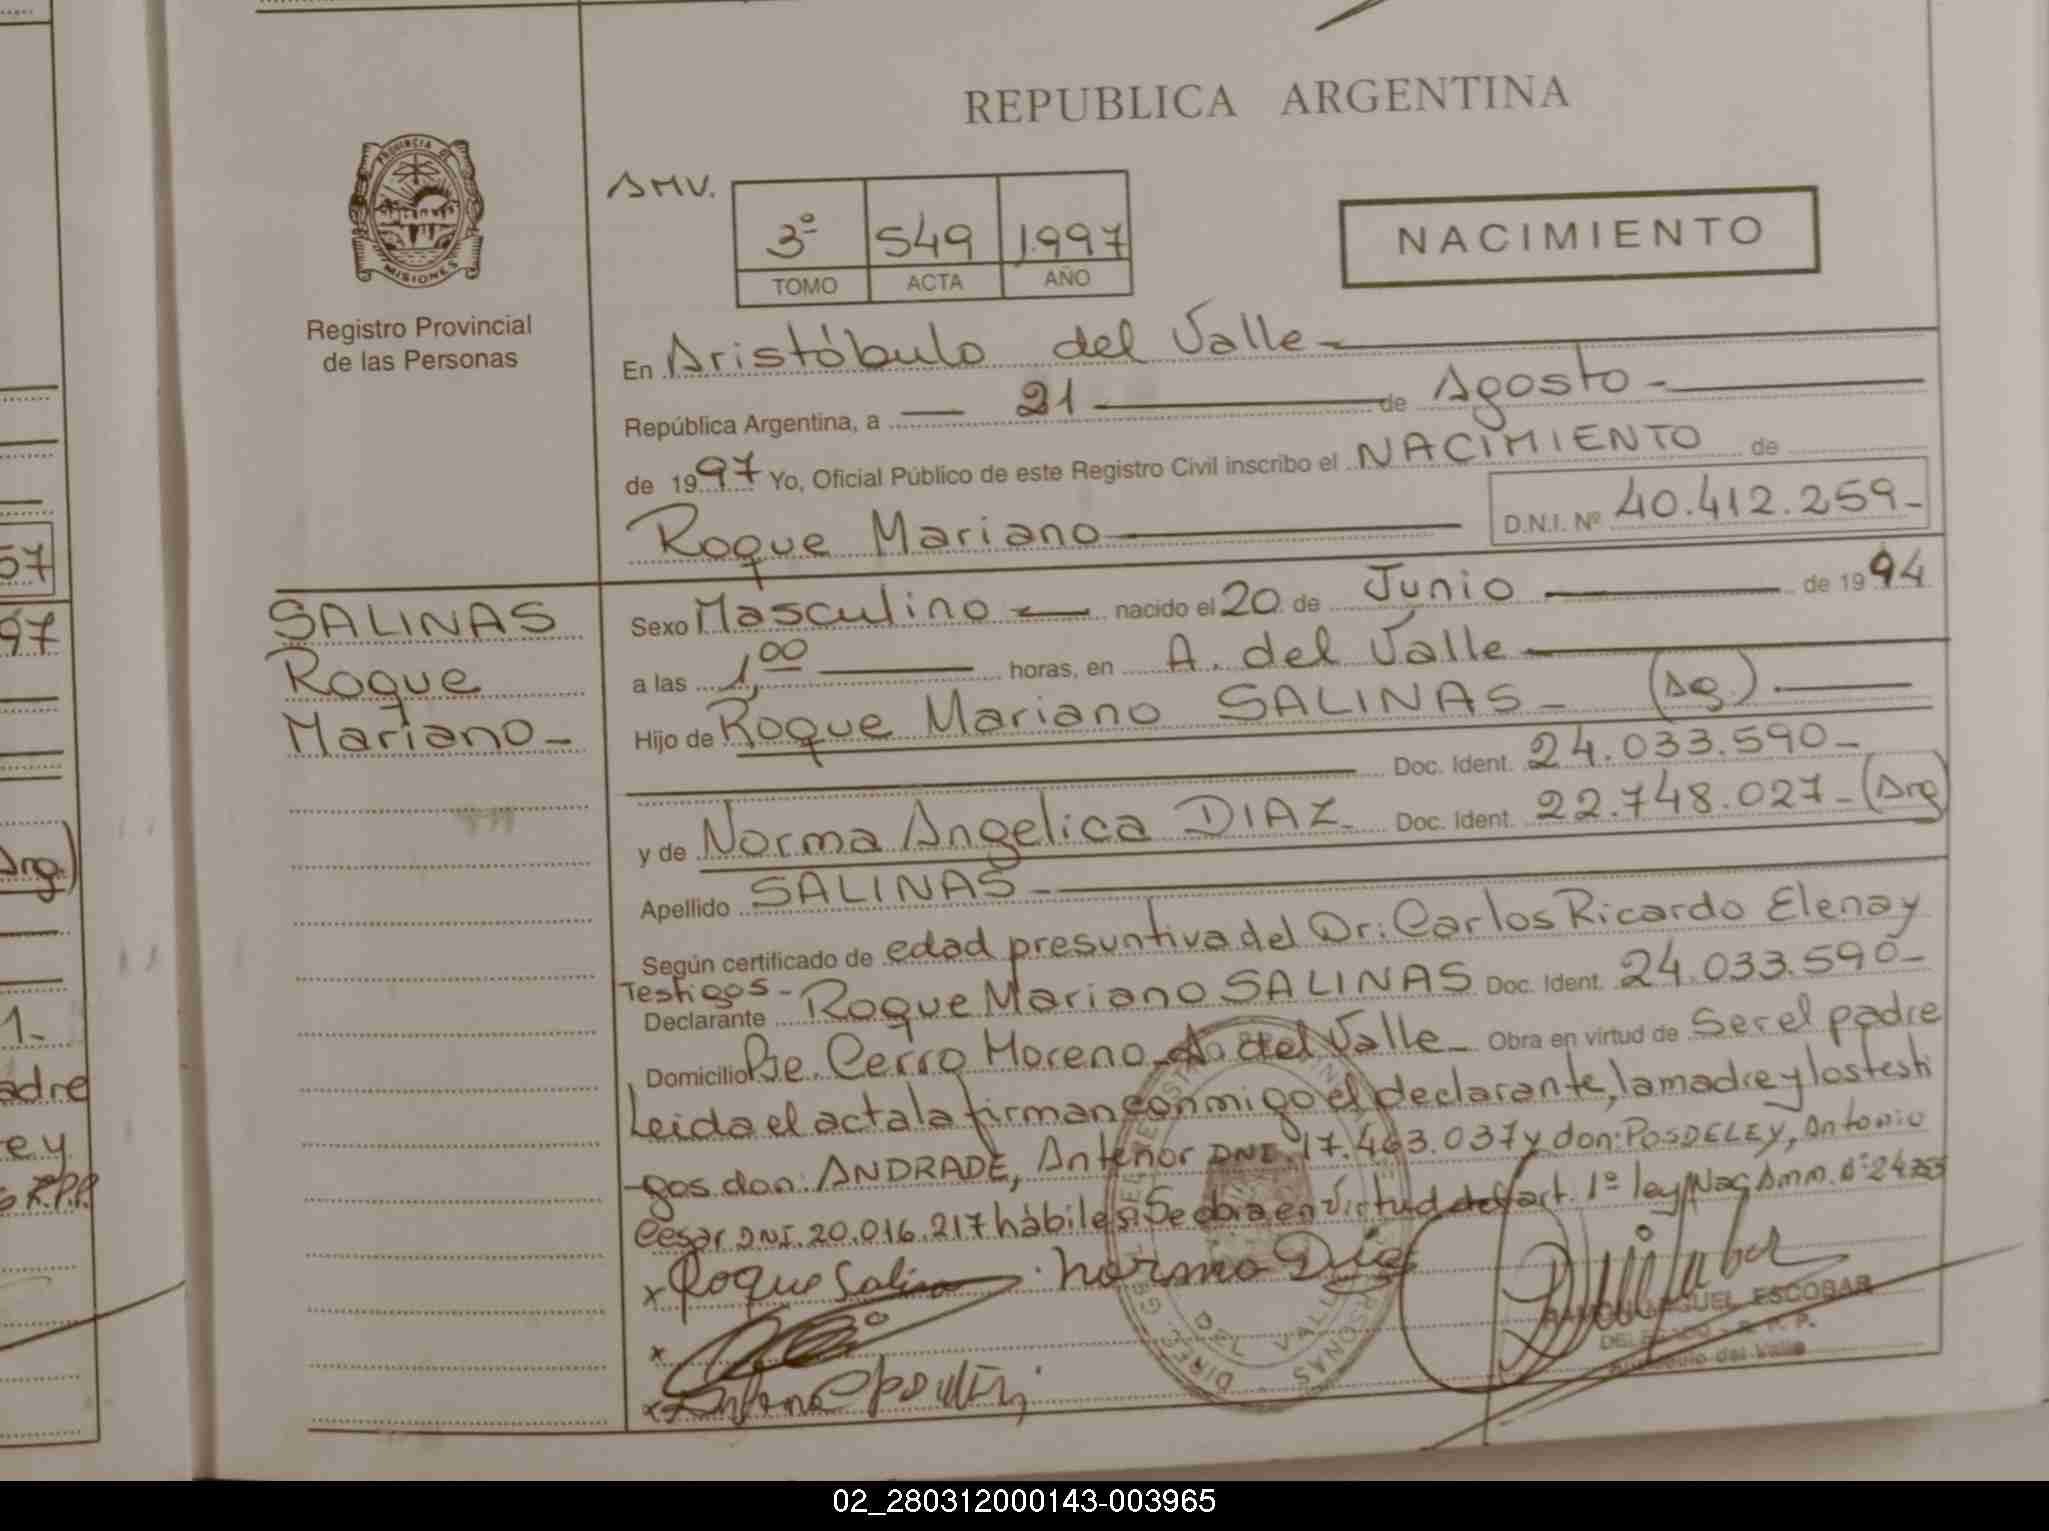 REPUBLICA ARGENTINA
PROVINCIA DE
MISIONES
Registro Provincial
de las Personas
AMV.
3º 549 1.997
TOMO ACTA AÑO
NACIMIENTO
En Aristóbulo del Valle -
República Argentina, a 21 de Agosto -
de 1997 Yo, Oficial Público de este Registro Civil inscribo el NACIMIENTO de
Roque Mariano D.N.I. Nº 40.412.259-
SALINAS
Roque
Mariano -
Sexo Masculino nacido el 20 de Junio de 1994
a las 1,00 horas, en A. del Valle -
Hijo de Roque Mariano SALINAS - (Ag.).
Doc. Ident. 24.033.590-
y de Norma Angelica DIAZ - Doc. Ident. 22.748.027-(Arg)
Apellido SALINAS -
Según certificado de edad presuntiva del Dr: Carlos Ricardo Elena y
Testigos - Declarante Roque Mariano SALINAS Doc. Ident. 24.033.590-
Domicilio Bje. Cerro Moreno - A. del Valle - Obra en virtud de Ser el padre
Leida el acta la firman conmigo el declarante, la madre y los testi
-gos don: ANDRADE, Antenor DNI. 17.463.037 y don: POSDELEY, Antonio
Cesar DNI. 20.016.217 hábiles. Se obra en virtud del art. 1º ley Nac
x Roque Salinas Norma Diaz
x
x
RAMON MIGUEL ESCOBAR
DELEGADO R. P. P.
Aristobulo del Valle
57
97
Arg.)
1-
adre
e y
R.P.P.
02_280312000143-003965